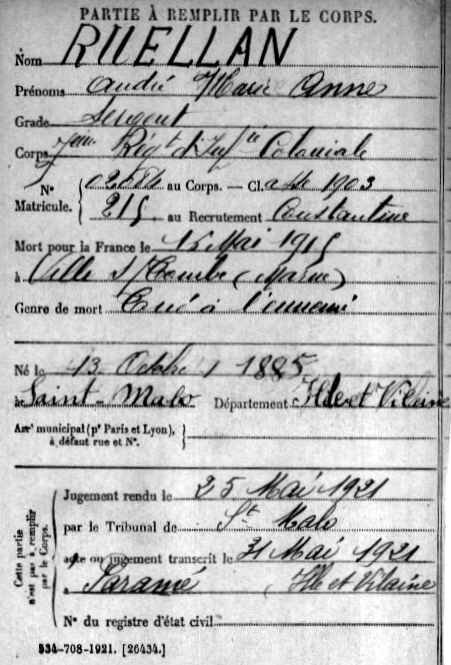 PARTIE À REMPLIR PAR LE CORPS.
Nom RUELLAN
Prénoms André Marie Anne
Grade Sergent
Corps 7ème Régt d'Infie Coloniale
N° 02584 au Corps. — Classe 1903
Matricule. 215 au Recrutement Constantine
Mort pour la France le 15 Mai 1915
à Ville s/Tourbe (Marne)
Genre de mort Tué à l'ennemi
Né le 13 Octobre 1885
à Saint-Malo Département Ille et Vilaine
Arrt municipal (pr Paris et Lyon),
à défaut rue et N°.
Cette partie n'est pas à remplir par le Corps.
Jugement rendu le 25 Mai 1921
par le Tribunal de St Malo
acte ou jugement transcrit le 31 Mai 1921
à Paramé Ille et Vilaine
N° du registre d'état civil
534-708-1921. [26434.]